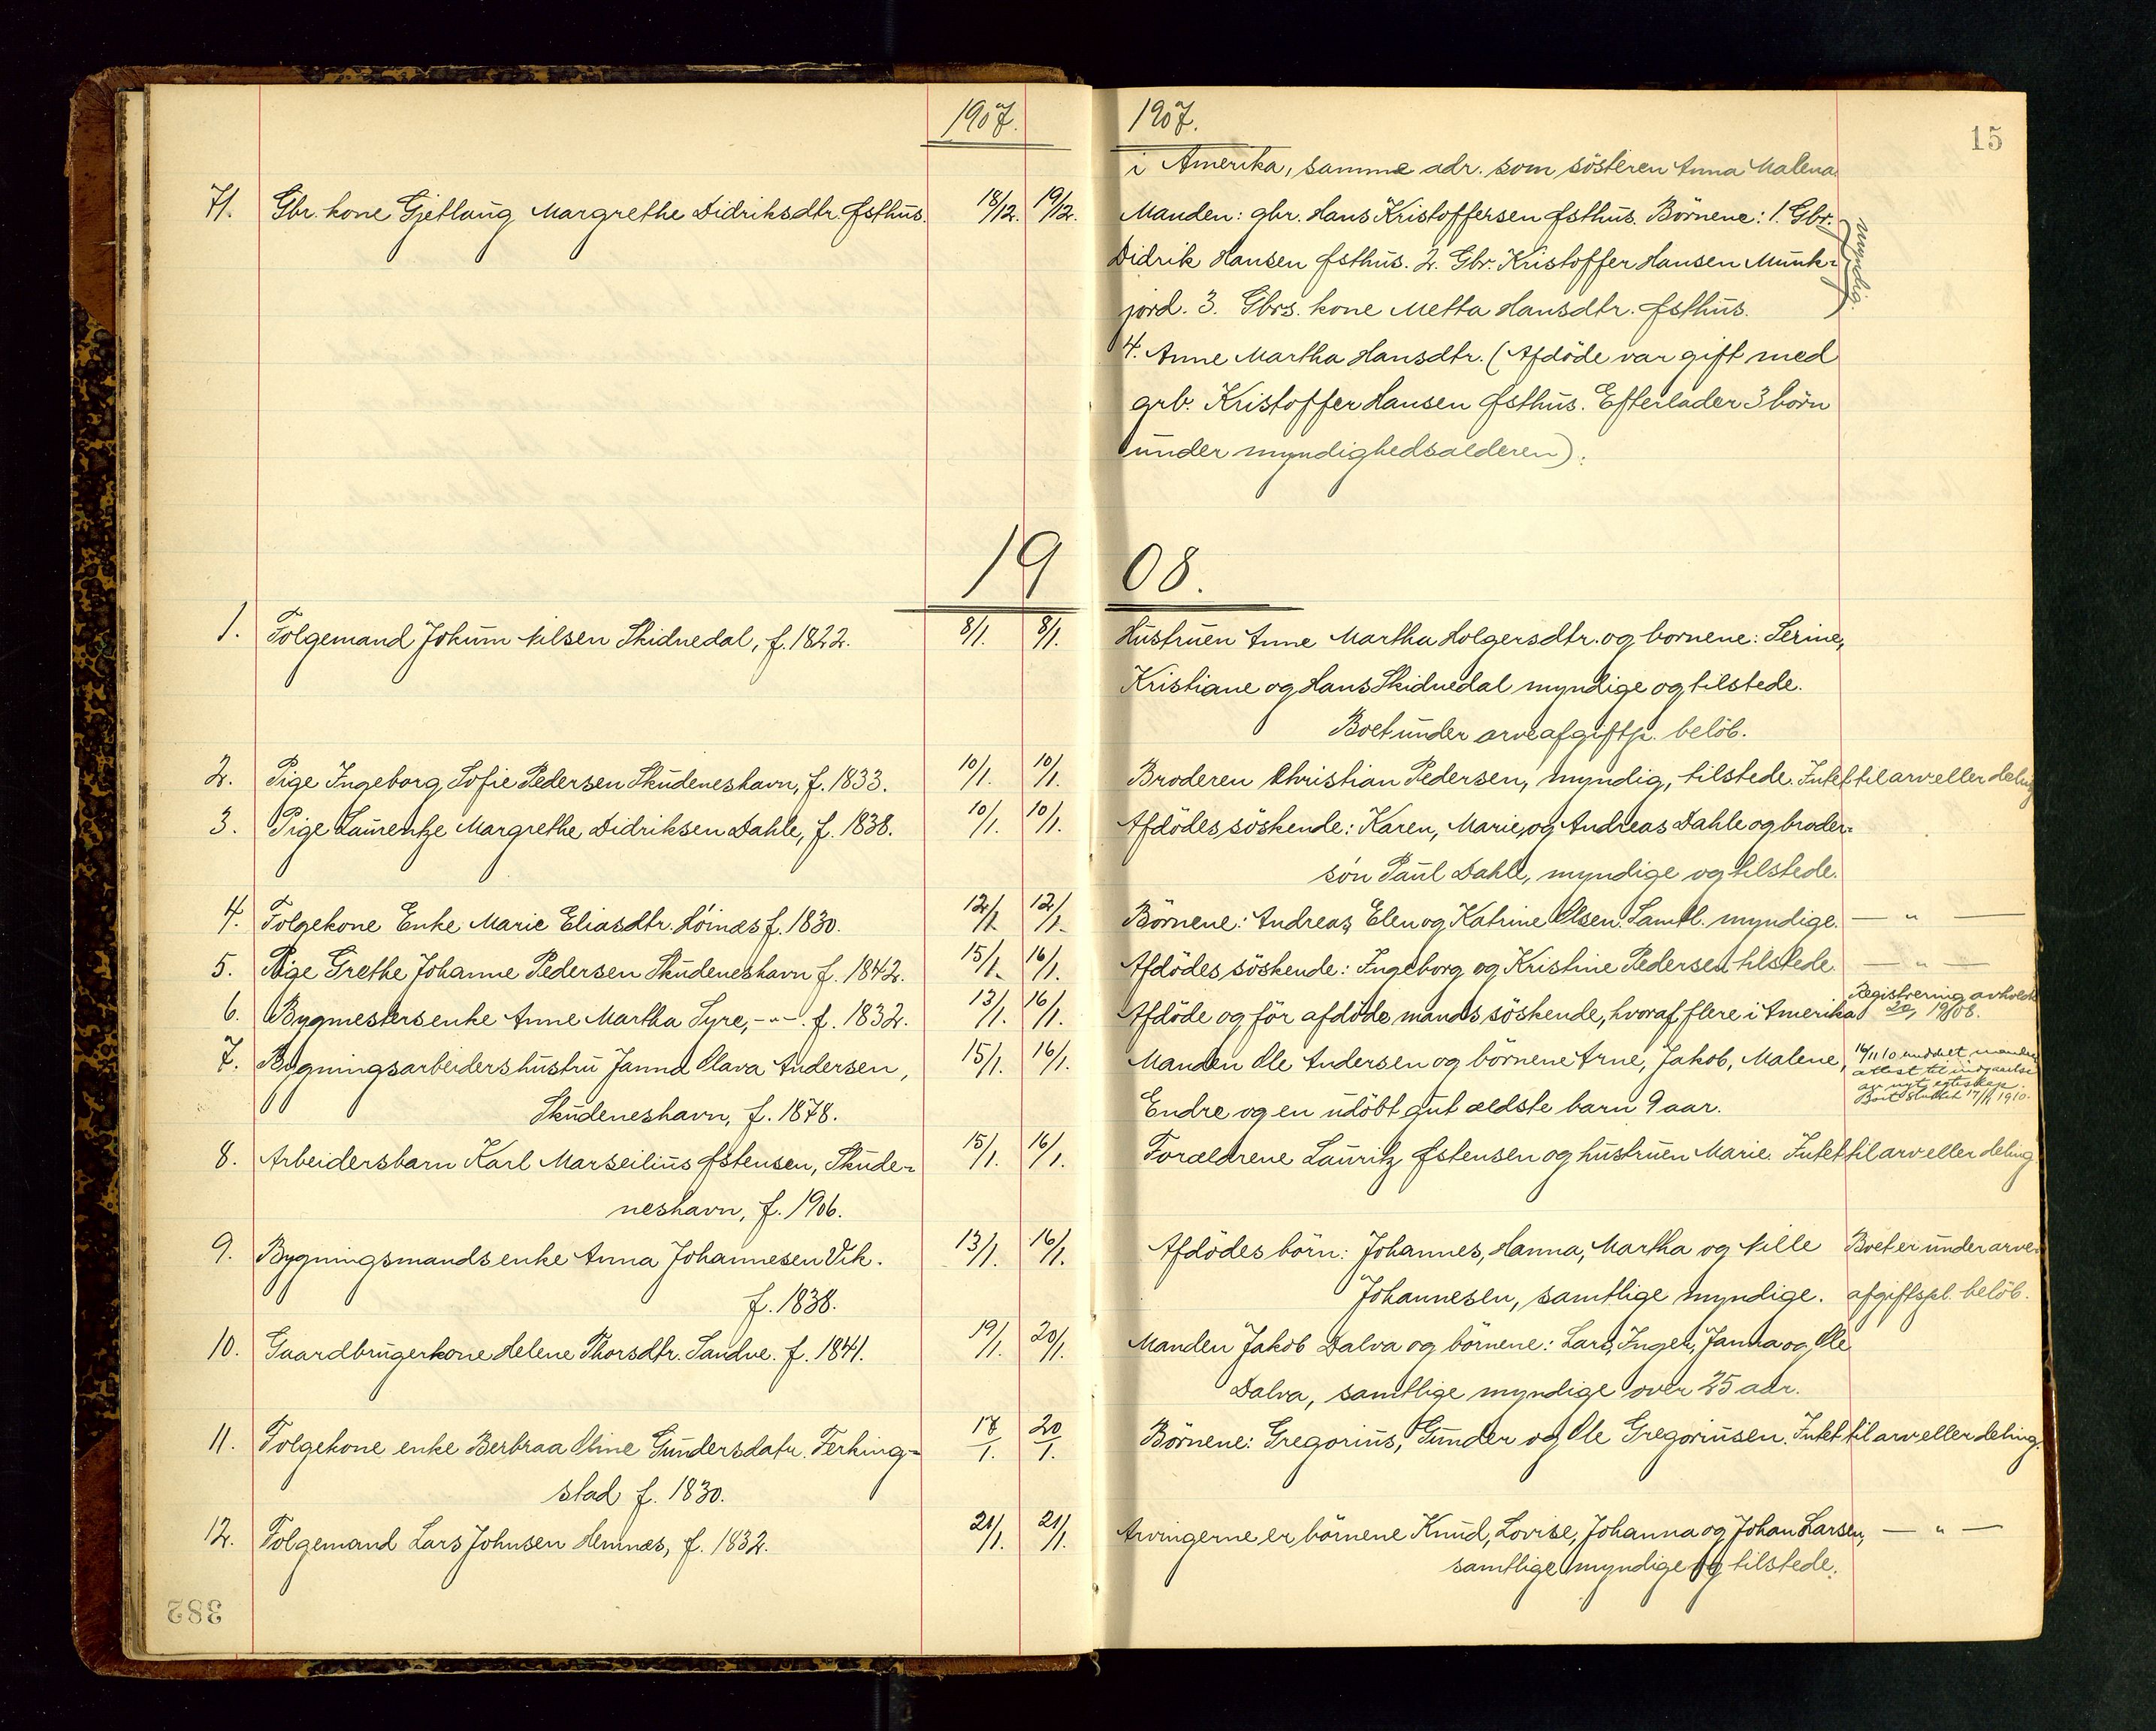 1907.
71. Gbr. kone Gjetlaug Margrethe Didriksdtr. Østhus. 18/12. 19/12.
1908.
1. Folgemand Jokum Nilsen Skidnedal, f. 1822. 8/1. 8/1.
2. Pige Ingeborg Sofie Pedersen Skudeneshavn, f. 1833. 10/1. 10/1.
3. Pige Laurentze Margrethe Didriksen Dahle, f. 1838. 10/1. 10/1.
4. Folgekone Enke Marie Eliasdtr. Höinæs f. 1830. 12/1. 12/1.
5. Pige Grethe Johanne Pedersen Skudeneshavn f. 1842. 15/1. 16/1.
6. Bygmestersenke Anne Martha Syre, -"-. f. 1832. 13/1. 16/1.
7. Bygningsarbeidershustru Janna Olava Andersen, 15/1. 16/1.
Skudeneshavn, f. 1878.
8. Arbeidersbarn Karl Marseilius Østensen, Skude- 15/1. 16/1.
neshavn, f. 1906.
9. Bygningsmandsenke Anna Johannesen Vik. 13/1. 16/1.
f. 1838.
10. Gaardbrugerkone Helene Thorsdtr. Sandve. f. 1841. 19/1. 20/1.
11. Folgekone enke Berbraa Oline Gundersdatr. Ferking- 17/1. 20/1.
stad f. 1830.
12. Folgemand Lars Johnsen Hemnæs, f. 1832. 21/1. 21/1.
382
1907.
15
i Amerika, samme adr. som sösteren Anna Malena
Manden: gbr. Hans Kristoffersen Østhus. Börnene: 1. Gbr.
Didrik Hansen Østhus. 2. Gbr. Kristoffer Hansen Munk-
jord. 3. Gbrs. kone Metta Hansdtr. Østhus.
myndig.
4. Anne Martha Hansdtr. (Afdöde var gift med
grb. Kristoffer Hansen Østhus. Efterlader 3 börn
under myndighedsalderen).
Hustruen Anne Martha Holgersdtr. og bornene: Serine,
Kristiane og Hans Skidnedal myndige og tilstede.
Boet under arveafgiftp. belöb.
Broderen Christian Pedersen, myndig, tilstede. Intet til arv eller deling
Afdödes söskende: Karen, Marie, og Andreas Dahle og broder-
sön Paul Dahle, myndige og tilstede.
Börnene: Andreas, Elen og Katrine Olsen. Samtl. myndige. — " —
Afdödes söskende: Ingeborg og Kristine Pedersen tilstede. — " —
Afdöde og för afdöde mands söskende, hvoraf flere i Amerika
Registrering avholdt
20/1 1908.
Manden Ole Andersen og börnene Arne, Jakob, Malene,
Endre og en udöbt gut ældste barn 9 aar.
16/11 10 meddelt manden
attest til indgaaelse
av nyt egteskap.
Boet sluttet 17/11 1910.
Forældrene Lauritz Østensen og hustruen Marie. Intet til arv eller deling
Afdödes börn: Johannes, Hanna, Martha og Nille Boet er under arve-
Johannesen, samtlige myndige. afgiftspl. belöb.
Manden Jakob Dalva og börnene: Lars, Inger, Janna og Ole
Dalva, samtlige myndige over 25 aar.
Börnene: Gregorius, Gunder og Ole Gregoriusen. Intet til arv eller deling.
Arvingerne er börnene Knud, Lovise, Johanna og Johan Larsen, — " —
samtlige myndige og tilstede.